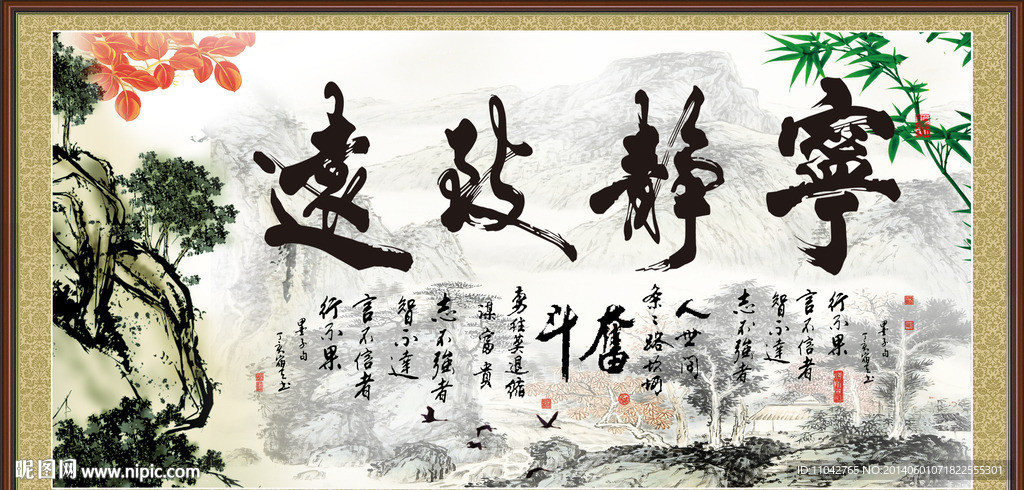 寧靜致遠
志不強者
智不達
言不信者
行不果
墨子句
人世间
条々路坎坷
奮斗
勇往莫退缩
谋富贵
志不強者
智不達
言不信者
行不果
墨子句
昵图网 www.nipic.com
ID:11042765 NO:20140601071822555301